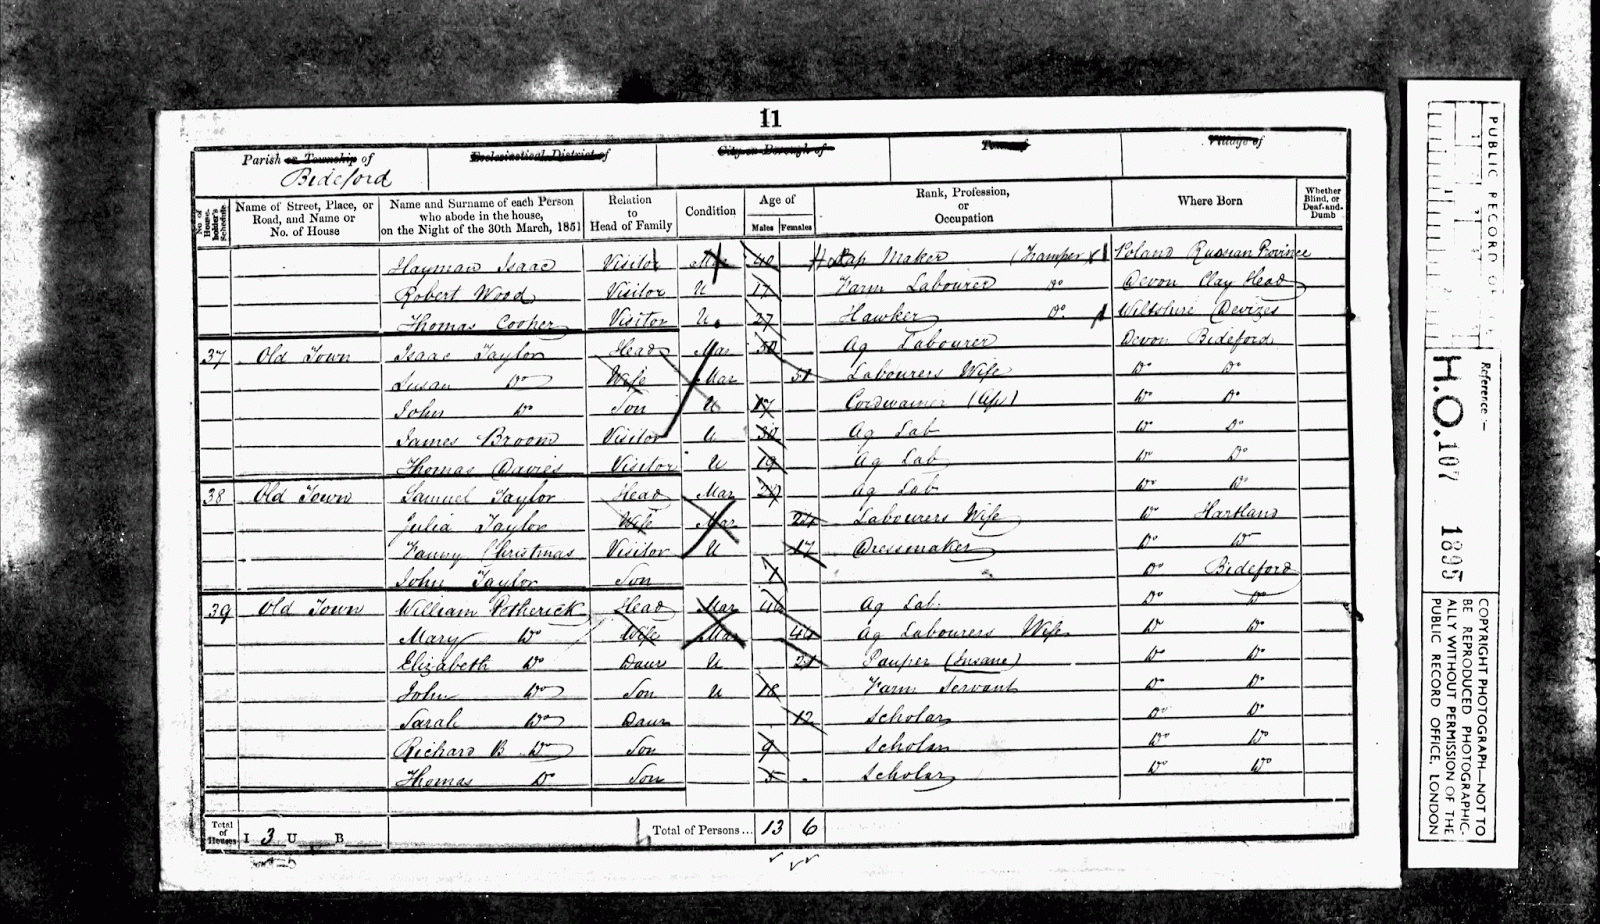 11
Parish or Township of
Ecclesiastical District of
City or Borough of
Town of
Village of
Bideford
No. of House-holder's Schedule
Name of Street, Place, or Road, and Name or No. of House
Name and Surname of each Person who abode in the house, on the Night of the 30th March, 1851
Relation to Head of Family
Condition
Age of
Males Females
Rank, Profession, or Occupation
Where Born
Whether Blind, or Deaf-and-Dumb
Hayman Isaac Visitor Mar 40 Cap Maker (Tramper) Poland Russian Province
Robert Wood Visitor U 17 Farm Labourer Do Devon Clay Head
Thomas Cooper Visitor U 27 Hawker Do Wiltshire Devizes
37 Old Town Isaac Taylor Head Mar 50 Ag Labourer Devon Bideford
Susan Do Wife Mar 51 Labourers Wife Do Do
John Do Son U 17 Cordwainer (Ap) Do Do
James Broom Visitor U 30 Ag Lab Do Do
Thomas Davies Visitor U 19 Ag Lab Do Do
38 Old Town Samuel Taylor Head Mar 28 Ag Lab Do Do
Julia Taylor Wife Mar 24 Labourers Wife Do Hartland
Fanny Christmas Visitor U 17 Dressmaker Do Do
John Taylor Son 1 Do Bideford
39 Old Town William Petherick Head Mar 46 Ag Lab. Do Do
Mary Do Wife Mar 44 Ag Labourers Wife Do Do
Elizabeth Do Daur U 21 Pauper (Insane) Do Do
John Do Son U 18 Farm Servant Do Do
Sarah Do Daur 12 Scholar Do Do
Richard B Do Son 9 Scholar Do Do
Thomas Do Son 5 Scholar Do Do
Total of Houses I 3 U B
Total of Persons... 13 6
PUBLIC RECORD OFFICE
Reference:-
H.O. 107 1895
COPYRIGHT PHOTOGRAPH—NOT TO
BE REPRODUCED PHOTOGRAPHIC-
ALLY WITHOUT PERMISSION OF THE
PUBLIC RECORD OFFICE, LONDON